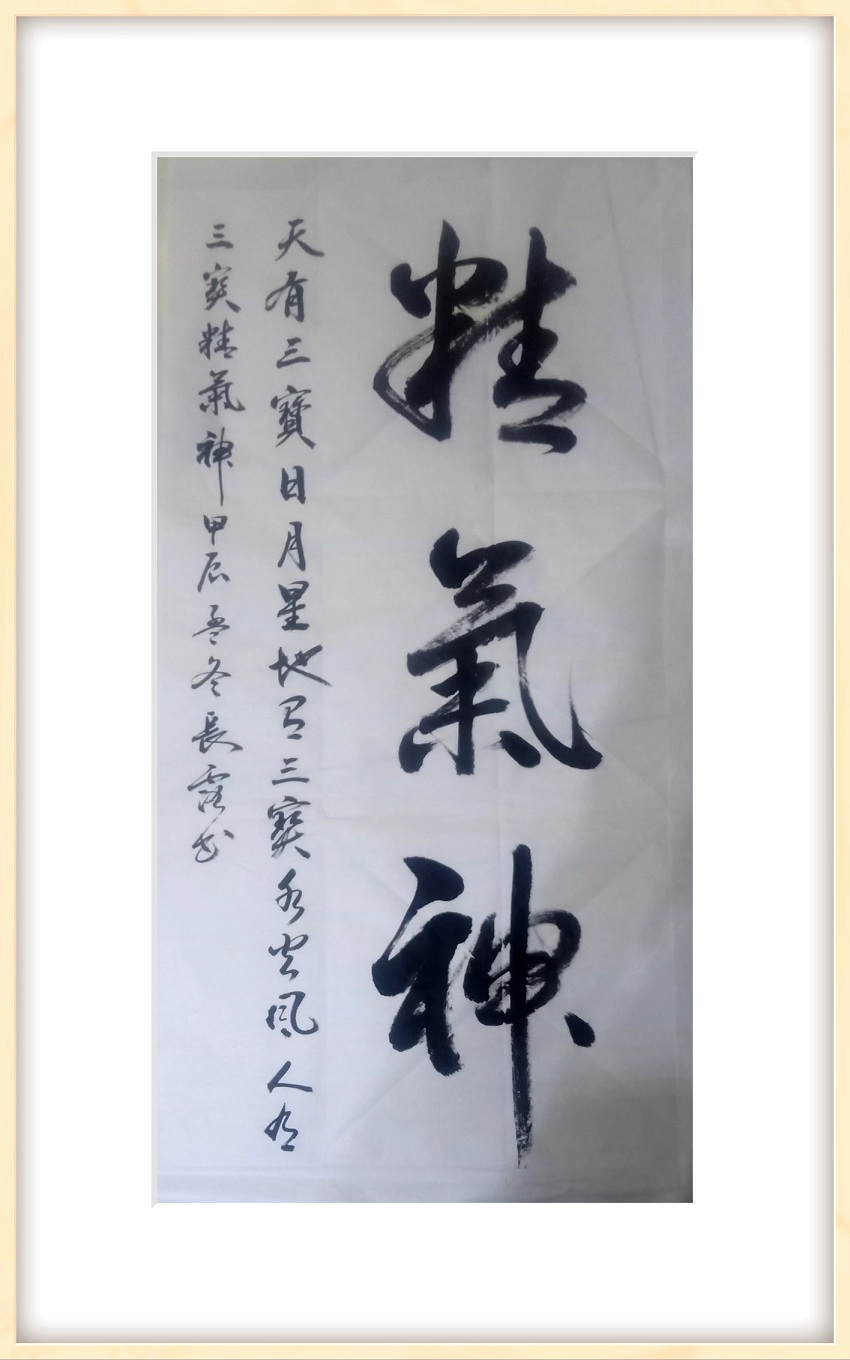 精氣神
天有三寶日月星地有三寶水火風人有
三寶精氣神甲辰孟冬長露書